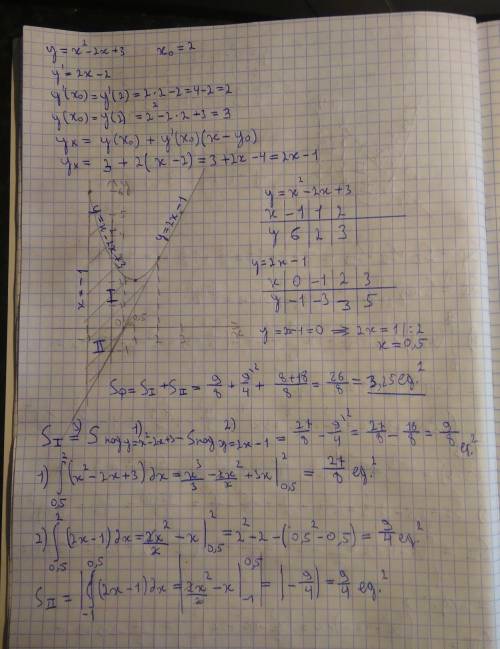 y = x² - 2x + 3    x₀ = 2
y' = 2x - 2
y'(x₀) = y'(2) = 2·2 - 2 = 4 - 2 = 2
y(x₀) = y(2) = 2² - 2·2 + 3 = 3
yₖ = y(x₀) + y'(x₀)(x - y₀)
yₖ = 3 + 2(x - 2) = 3 + 2x - 4 = 2x - 1
y = x² - 2x + 3
x -1 1 2
y 6 2 3
y = 2x - 1
x 0 -1 2 3
y -1 -3 3 5
y = 2x - 1 = 0 ⟹ 2x = 1 |:2
x = 0,5
y = x² - 2x + 3
y = 2x - 1
x = -1
I
II
0,5
1 2
Sф = S_I + S_II = 9/8 + 9/4 \²  = (8+18)/8 = 26/8 = 3,25 ед.²
S_I 3) = S под y = x² - 2x + 3 1) - S под y = 2x - 1 2) = 27/8 - 9/4 \² = 27/8 - 18/8 = 9/8 ед.²
1) ∫_{0,5}^{2} (x² - 2x + 3) dx = x³/3 - 2x²/2 + 3x |_{0,5}^{2} = 27/8 ед.²
2) ∫_{0,5}^{2} (2x - 1) dx = 2x²/2 - x |_{0,5}^{2} = 2² - 2 - (0,5² - 0,5) = 9/4 ед.²
S_II = |∫_{-1}^{0,5} (2x - 1) dx| = |2x²/2 - x |_{-1}^{0,5}| = |-9/4| = 9/4 ед.²